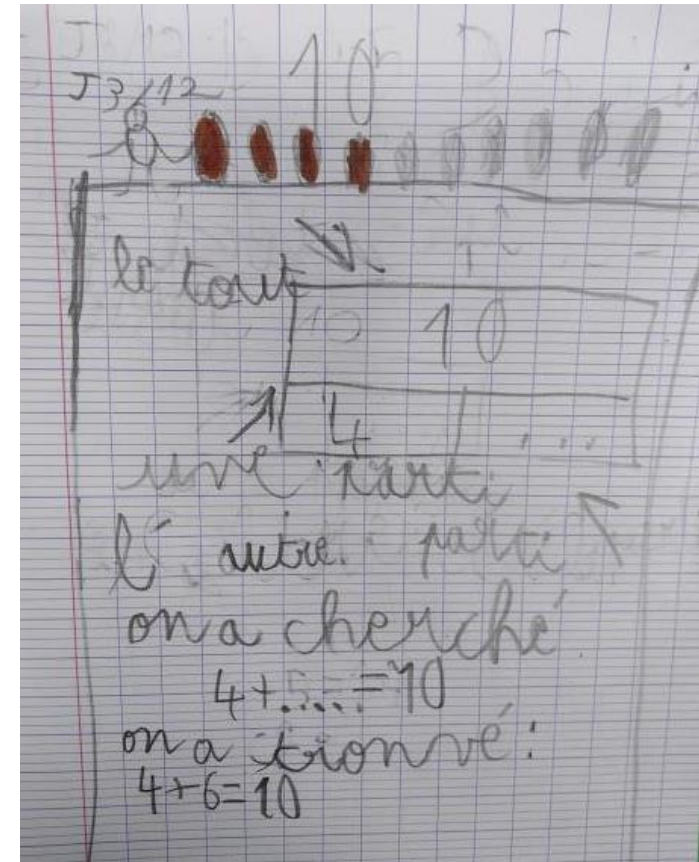 J3/12 10
le tout
10 10
4 ...
une parti
l'autre parti
on a cherché
4+....=10
on a trouvé:
4+6=10